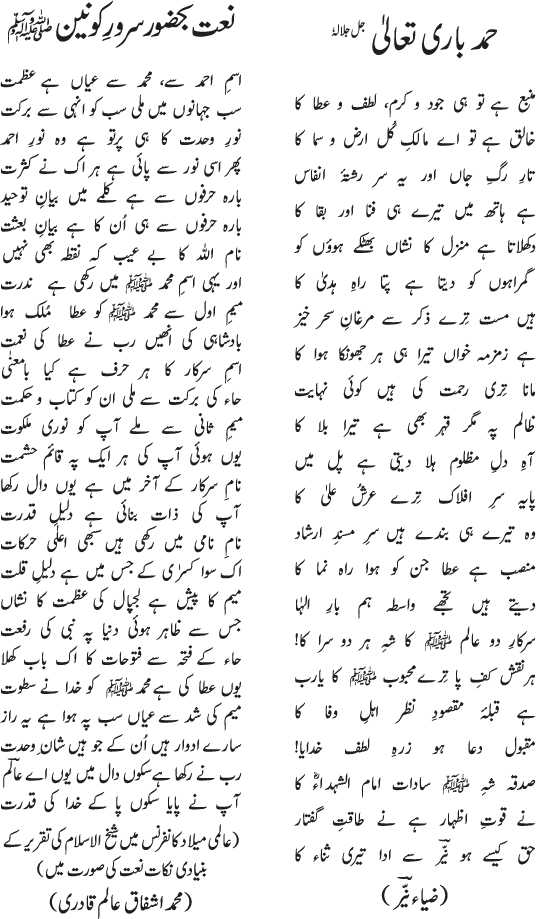 حمد باری تعالیٰ جل جلالہٗ
منبع ہے تو ہی جود و کرم، لطف و عطا کا
خالق ہے تو اے مالکِ کُل ارض و سما کا
تارِ رگِ جاں اور یہ سر رشتۂ انفاس
ہے ہاتھ میں تیرے ہی فنا اور بقا کا
دکھلاتا ہے منزل کا نشاں بھٹکے ہوؤں کو
گمراہوں کو دیتا ہے پتا راہِ ہدیٰ کا
ہیں مست ترے ذکر سے مرغانِ سحر خیز
ہے زمزمہ خواں تیرا ہی ہر جھونکا ہوا کا
مانا تِری رحمت کی ہیں کوئی نہایت
ظالم پہ مگر قہر بھی ہے تیرا بلا کا
آہِ دلِ مظلوم ہلا دیتی ہے پل میں
پایہ سرِ افلاک تِرے عرشِ علیٰ کا
وہ تیرے ہی بندے ہیں سرِ مسندِ ارشاد
منصب ہے عطا جن کو ہوا راہ نما کا
دیتے ہیں تجھے واسطہ ہم بارِ الٰہا
سرکارِ دو عالم ﷺ کا شہِ ہر دو سرا کا!
ہر نقش کفِ پا ترے محبوب ﷺ کا یارب
ہے قبلۂ مقصودِ نظر اہلِ وفا کا
مقبول دعا ہو زرہِ لطف خدایا!
صدقہ شہِ ﷺ سادات امام الشہداءؓ کا
نے قوتِ اظہار ہے نے طاقتِ گفتار
حق کیسے ہو نیّرؔ سے ادا تیری ثناء کا
(ضیاء نیّرؔ)
نعت بحضور سرورِ کونین ﷺ
اسمِ احمد سے، محمد سے عیاں ہے عظمت
سب جہانوں میں ملی سب کو انہی سے برکت
نورِ وحدت کا ہی پرتو ہے وہ نورِ احمد
پھر اسی نور سے پائی ہے ہر اک نے کثرت
بارہ حرفوں سے ہے کلمے میں بیانِ توحید
بارہ حرفوں سے ہی اُن کا ہے بیانِ بعثت
نام اللہ کا بے عیب کہ نقطہ بھی نہیں
اور یہی اسمِ محمد ﷺ میں رکھی ہے ندرت
میمِ اول سے محمد ﷺ کو عطا مُلک ہوا
بادشاہی کی انھیں رب نے عطا کی نعمت
اسمِ سرکار کا ہر حرف ہے کیا بامعنیٰ
حاء کی برکت سے ملی ان کو کتاب و حکمت
میمِ ثانی سے ملے آپ کو نوری ملکوت
یوں ہوئی آپ کی ہر ایک پہ قائم حشمت
نامِ سرکار کے آخر میں ہے یوں دال رکھا
آپ کی ذات بنائی ہے دلیلِ قدرت
نامِ نامی میں رکھی ہیں سبھی اعلیٰ حرکات
اک سوا کسریٰ کے جس میں ہے دلیلِ قلت
میم کا پیش ہے لجپال کی عظمت کا نشاں
جس سے ظاہر ہوئی دنیا پہ نبی کی رفعت
حاء کے فتحہ سے فتوحات کا اک باب کھلا
یوں عطا کی ہے محمد ﷺ کو خدا نے سطوت
میم کی شد سے عیاں سب پہ ہوا ہے یہ راز
سارے ادوار ہیں اُن کے جو ہیں شان وحدت
رب نے رکھا ہے سکوں دال میں یوں اے عالمؔ
آپ نے پایا سکوں پا کے خدا کی قدرت
(عالمی میلاد کانفرنس میں شیخ الاسلام کی تقریر کے
بنیادی نکات نعت کی صورت میں)
(محمد اشفاق عالم قادری)